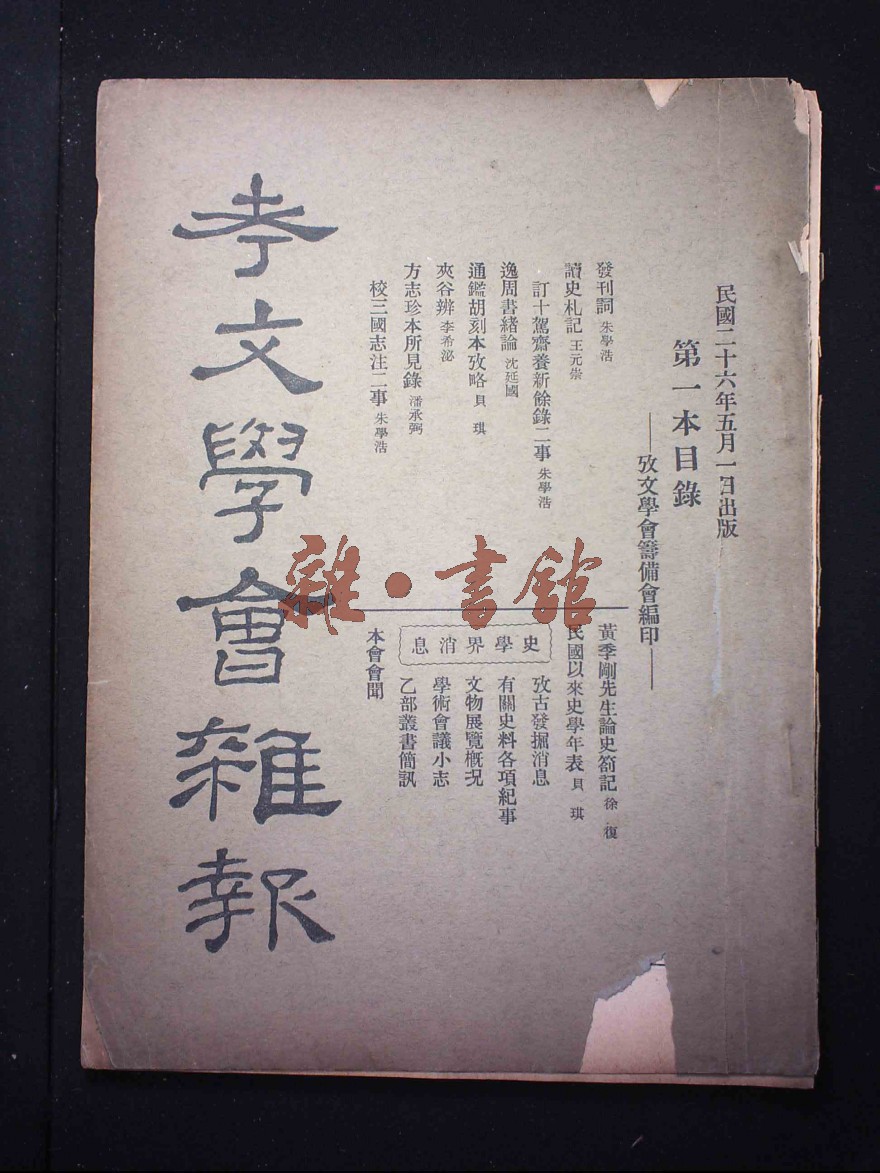 民國二十六年五月一日出版
第一本目錄
——攷文學會籌備會編印——
發刊詞 朱學浩
讀史札記 王元崇
訂十駕齋養新餘錄二事 朱學浩
逸周書緒論 沈延國
通鑑胡刻本攷略 貝琪
夾谷辨 李希泌
方志珍本所見錄 潘承弼
校三國志注二事 朱學浩
黃季剛先生論史劄記 徐復
民國以來史學年表 貝琪
史學界消息
攷古發掘消息
有關史料各項紀事
文物展覽概況
學術會議小志
乙部叢書簡訊
本會會聞
考文學會雜報
雜·書館